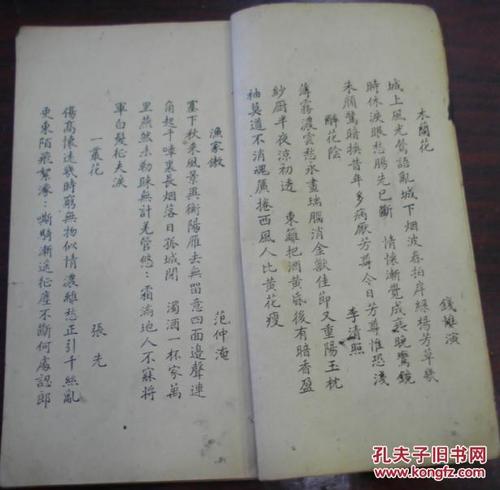 木蘭花
錢惟演
城上風光鶯語亂城下烟波春拍岸綠楊芳草幾
時休淚眼愁腸先已斷　情懷漸覺成衰晚鸞鏡
朱顏驚暗換昔年多病厭芳尊今日芳尊惟恐淺
醉花陰
李清照
薄霧濃雲愁永晝瑞腦消金獸佳節又重陽玉枕
紗厨半夜涼初透　東籬把酒黃昏後有暗香盈
袖莫道不消魂簾捲西風人比黃花瘦
漁家傲
范仲淹
塞下秋來風景異衡陽雁去無留意四面邊聲連
角起千嶂裏長烟落日孤城閉　濁酒一杯家萬
里燕然未勒歸無計羌管悠〻霜滿地人不寐將
軍白髮征夫淚
一叢花
張先
傷高懷遠幾時窮無物似情濃離愁正引千絲亂
更東陌飛絮濛〻嘶騎漸遥征塵不斷何處認郎
孔夫子旧书网
www.kongfz.com